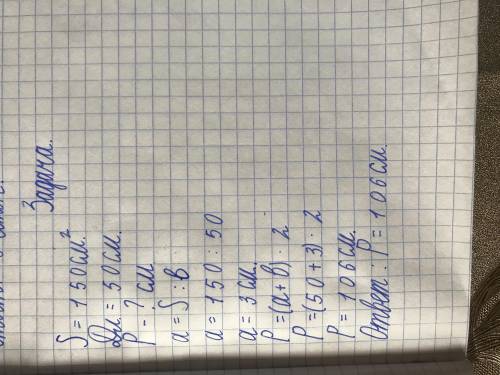 Задача.
S = 150 см²
Дл. = 50 см.
P - ? см
a = S : в
a = 150 : 50
a = 3 см.
P = (a + в) · 2
P = (50 + 3) · 2
P = 106 см.
Ответ: P = 106 см.